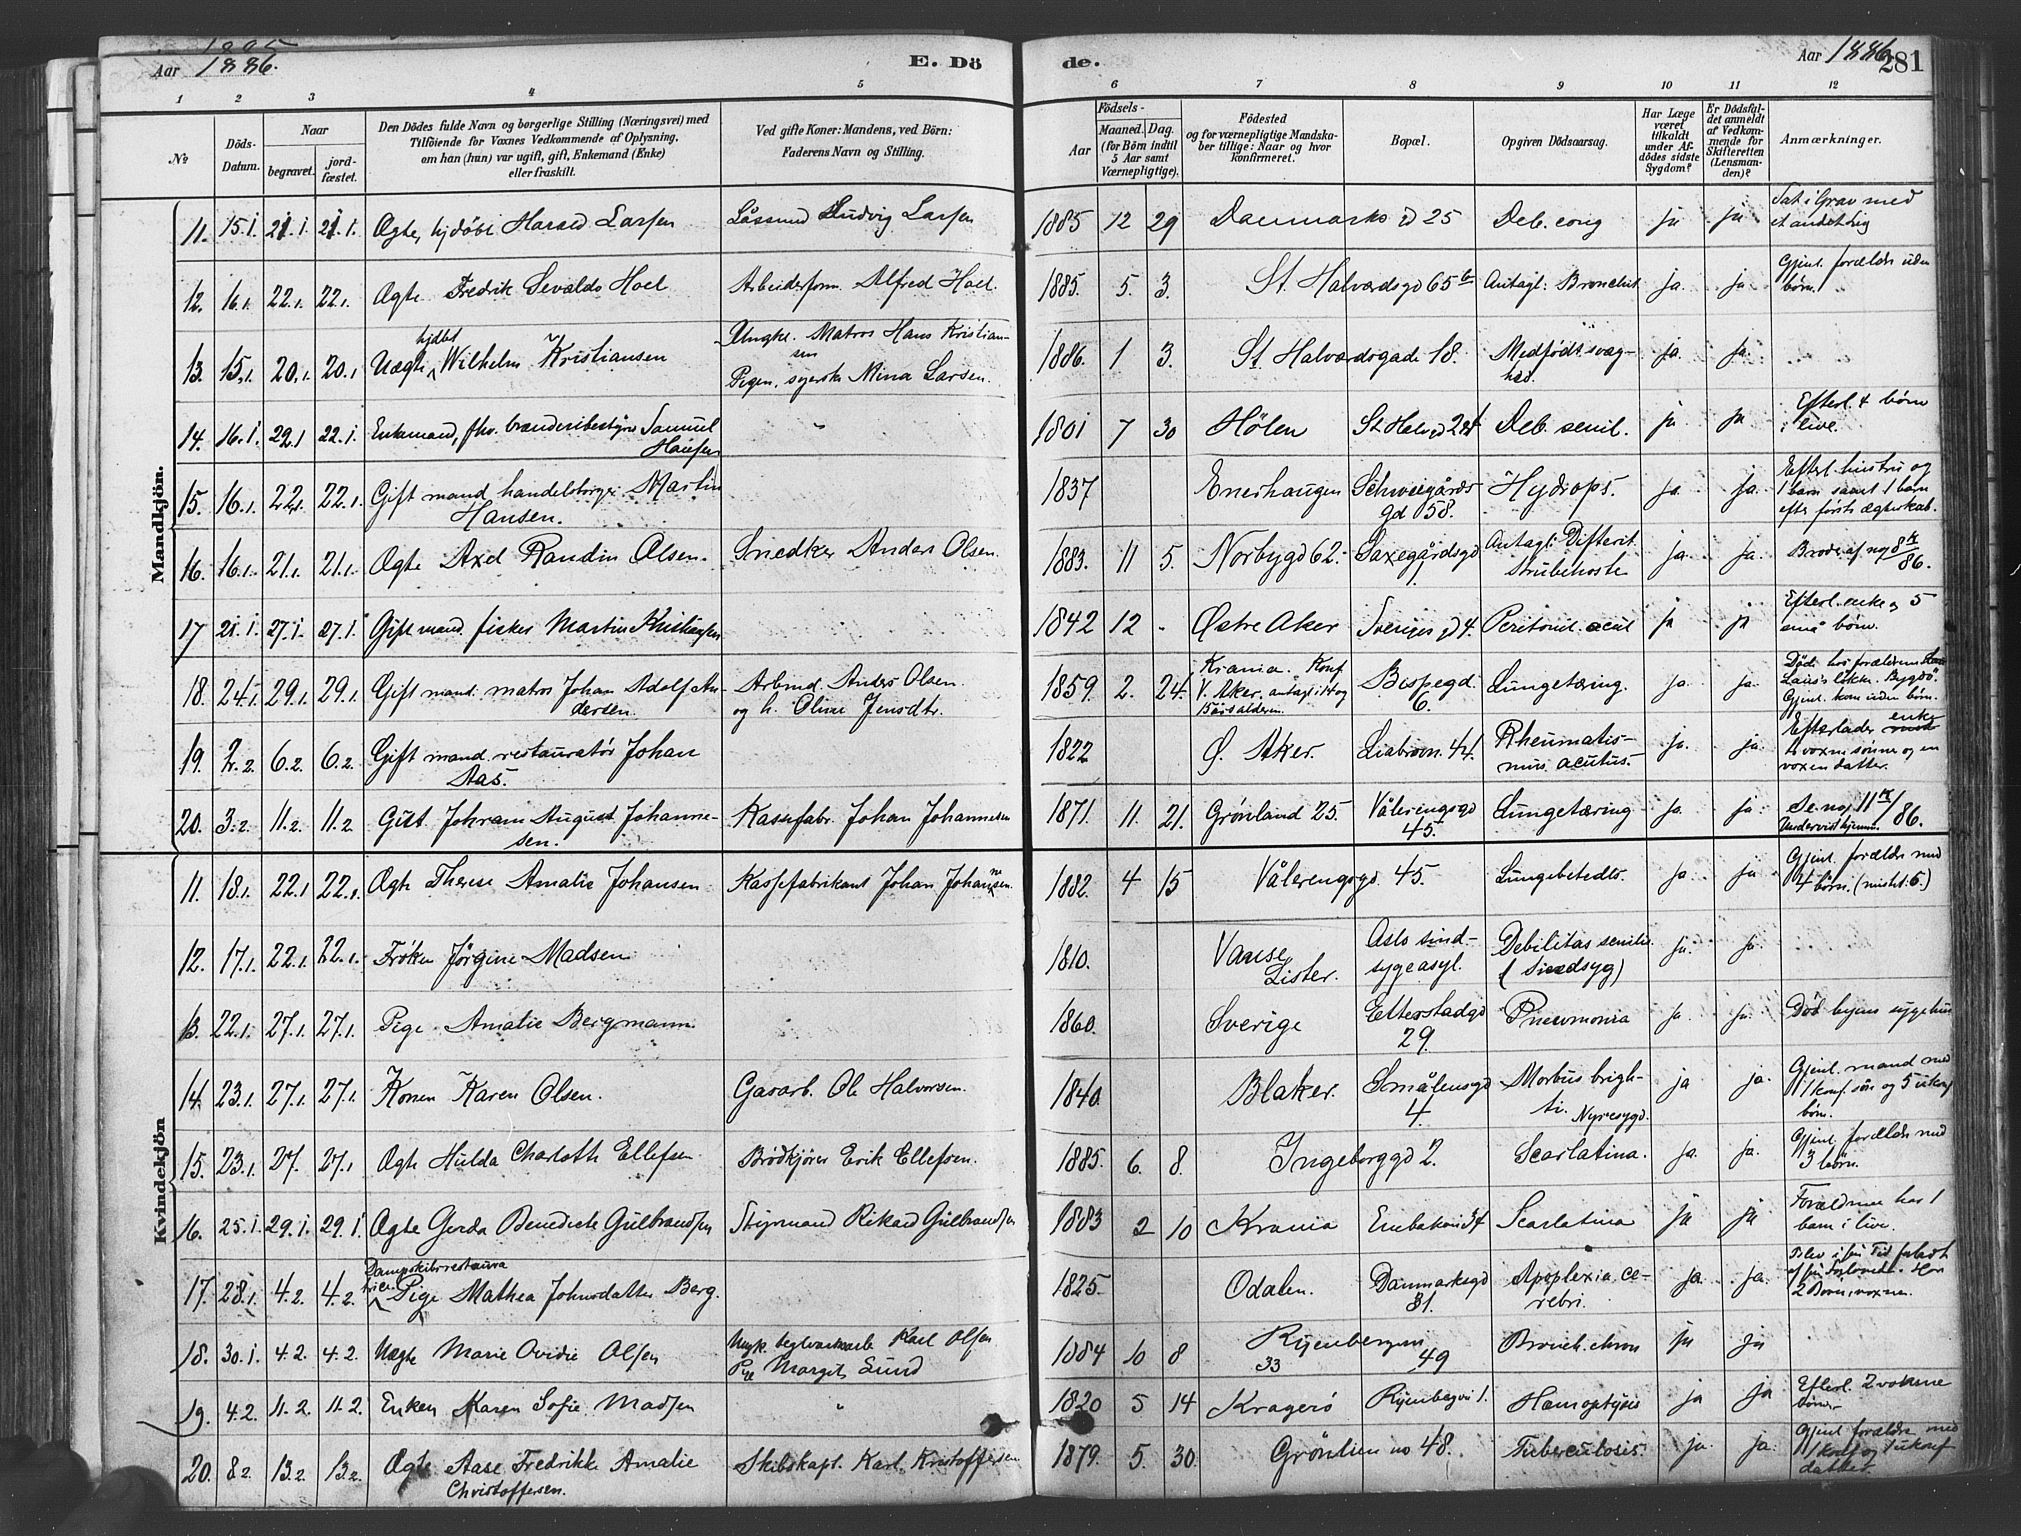 1885
Aar 1886.
E. Döde.
Aar 1886.
281
1 2 3 4 5 6 7 8 9 10 11 12
№
Döds-Datum.
Naar
begravet.
jord-fæstet.
Den Dödes fulde Navn og borgerlige Stilling (Næringsvei) med
Tilföiende for Voxnes Vedkommende af Oplysning,
om han (hun) var ugift, gift, Enkemand (Enke)
eller fraskilt.
Ved gifte Koner: Mandens, ved Börn:
Faderens Navn og Stilling.
Födsels-
Aar
Maaned. Dag.
(for Börn indtil
5 Aar samt
Værnepligtige).
Födested
og for værnepligtige Mandska-
ber tillige: Naar og hvor
konfirmeret.
Bopæl.
Opgiven Dödsaarsag.
Har Læge
været
tilkaldt
under Af-
dödes sidste
Sygdom?
Er Dödsfal-
det anmeldt
af Vedkom-
mende for
Skifteretten
(Lensman-
den)?
Anmærkninger.
Mandkjön.
11. 15.1. 21.1. 21.1. Ægte, hjdøbt Harald Larsen Ludvig Larsen 1885 12 29 Danmarksgd 25 Deb. cong ja ja Sat i Grav med et andet Lig
12. 16.1. 22.1. 22.1. Ægte Fredrik Sevaldo Hoel Arbeiderform. Alfred Hoel. 1885. 5. 3. St. Halvardsgd 65b Antagl: Bronchit. ja. ja. Gjenl. forældre uden børn.
13. 15.1. 20.1. 20.1. Uægte hjdøbt Wilhelm Kristiansen Ungkr. Matros Hans Kristiansen Pigen, syerske Mina Larsen. 1886. 1 3. St. Halvardsgade 18. Medfødt svaghed. ja. ja.
14. 16.1. 22.1 22.1. Enkemand, fhv. brænderibestyrer Samuel Hansen " 1801 7 30 Hølen St. Halvgd Deb. senil. ja ja Efterl. 4 børn i live.
15. 16.1. 22.1. 22.1. Gift mand handelsborger Martin Hansen. 1837 Enerhaugen Schweigårdsgd 58. Hydrops. ja. ja. Efterl. hustru og 1 barn samt 1 barn efter første ægteskab.
16. 16.1. 21.1. 21.1. Ægte Axel Randin Olsen. Snedker Anders Olsen. 1883. 11 5. Norbygd 62. Saxegårdsgd Antagl: Difterit. Strubehoste ja. ja. Broder af no 8 k/86.
17 21.1. 27.1. 27.1. Gift mand. fisker Martin Kristiansen 1842 12 - Østre Aker Sverigesgd 4. Peritonit. acut ja ja Efterl. enke og 5 små børn.
18. 24.1. 29.1. 29.1. Gift mand. matros Johan Adolf Andersen. Arbmd. Anders Olsen og h. Oline Jensdtr. 1859. 2. 24. Krania. Konf. V. Aker, antagl i 14 og 15 års alderen. Bispegd. 6. Lungetæring. ja. ja. Døde hos forældrene løkke. Bygdø. Gjenl. kone uden børn.
19. 2.2. 6.2. 6.2. Gift mand. restauratør Johan Aas. 1822 Ø. Aker. Liabroen. 44. Rheumatismus. acutus. ja. ja. Efterlader enke 4 voxne sønner og en voxen datter.
20. 3.2. 11.2. 11.2. Gift Johan August Johannesen. Kassefabr. Johan Johannesen 1871. 11. 21. Grønland 25. Vålerengsgd 45. Lungetæring ja. ja. Se no 11 k/86. Undervist hjemme.
Kvindekjön
11. 18.1. 22.1 22.1. Ægte Therese Amalie Johansen Kassefabrikant Johan Johannesen. 1882. 4 15 Vålerengsgd 45. Lungebetedts. ja. ja. Gjenl. forældre med 4 børn. (mistet: 6.)
12. 17.1. 22.1. 22.1. Frøken Jørgine Madsen 1810. Vanse, Lister. Oslo sindsygeasyl. Debilitas senilis (sindsyg) ja. ja.
13. 22.1. 27.1. 27.1. Pige. Amalie Bergmann. 1860. Sverige Etterstadgd 29. Pneumonia ja. ja. Død byens sygehus
14. 23.1. 27.1. 27.1. Konen Karen Olsen. Gasarb. Ole Halvorsen. 1840. Blaker. Smålensgd 4. Morbus brighti. Nyresygd. ja ja. Gjenl. mand med 1 konf. søn og 5 ukonf børn.
15. 23.1. 27. 27.1 Ægte Hulda Charlotte Ellefsen Brødkjører Erik Ellefsen. 1885. 6. 8. Ingeborggd 2. Scarlatina. ja. ja. Gjenl. forældre med 3 børn.
16. 25.1. 29.1. 29.1. Ægte Gerda Benedicte Gulbrandsen Styrmand Rikard Gulbrandsen 1883 2 10 Krania Scarlatina ja ja Forældrene har 1 barn i live.
17. 28.1. 4.2. 4.2. Dampskibsrestauratrice Pige Mathea Johnsdatter Berg. 1825. Odalen. Danmarksgd 31. Apoplexia cerebri. ja. ja. Blev i sin Tid forladt af sin Forlovede. Har 2 Børn, voxne.
18. 30.1. 4.2. 4.2. Uægte Marie Ovidie Olsen Ungk. teglverksarb Karl Olsen Pge Margit Lund 1884 10 8 Ryenbergen 33 49 Bronch. chron ja ja
19. 4.2. 11.2. 11.2. Enken Karen Sofie Madsen " 1820 5 14 Kragerø Ryenbergvn 1. Hæmoptysis ja ja Efterl. 2 voksne sønner
20. 8.2. 13.2. 13.2. Ægte Aase Fredrikke Amalie Christoffersen. Skibskapt. Karl Kristoffersen 1879. 5. 30 Grønlien no 48. Tuberculosis. ja ja. Gjenl forældre med 1 konf og 1 ukonf datter.